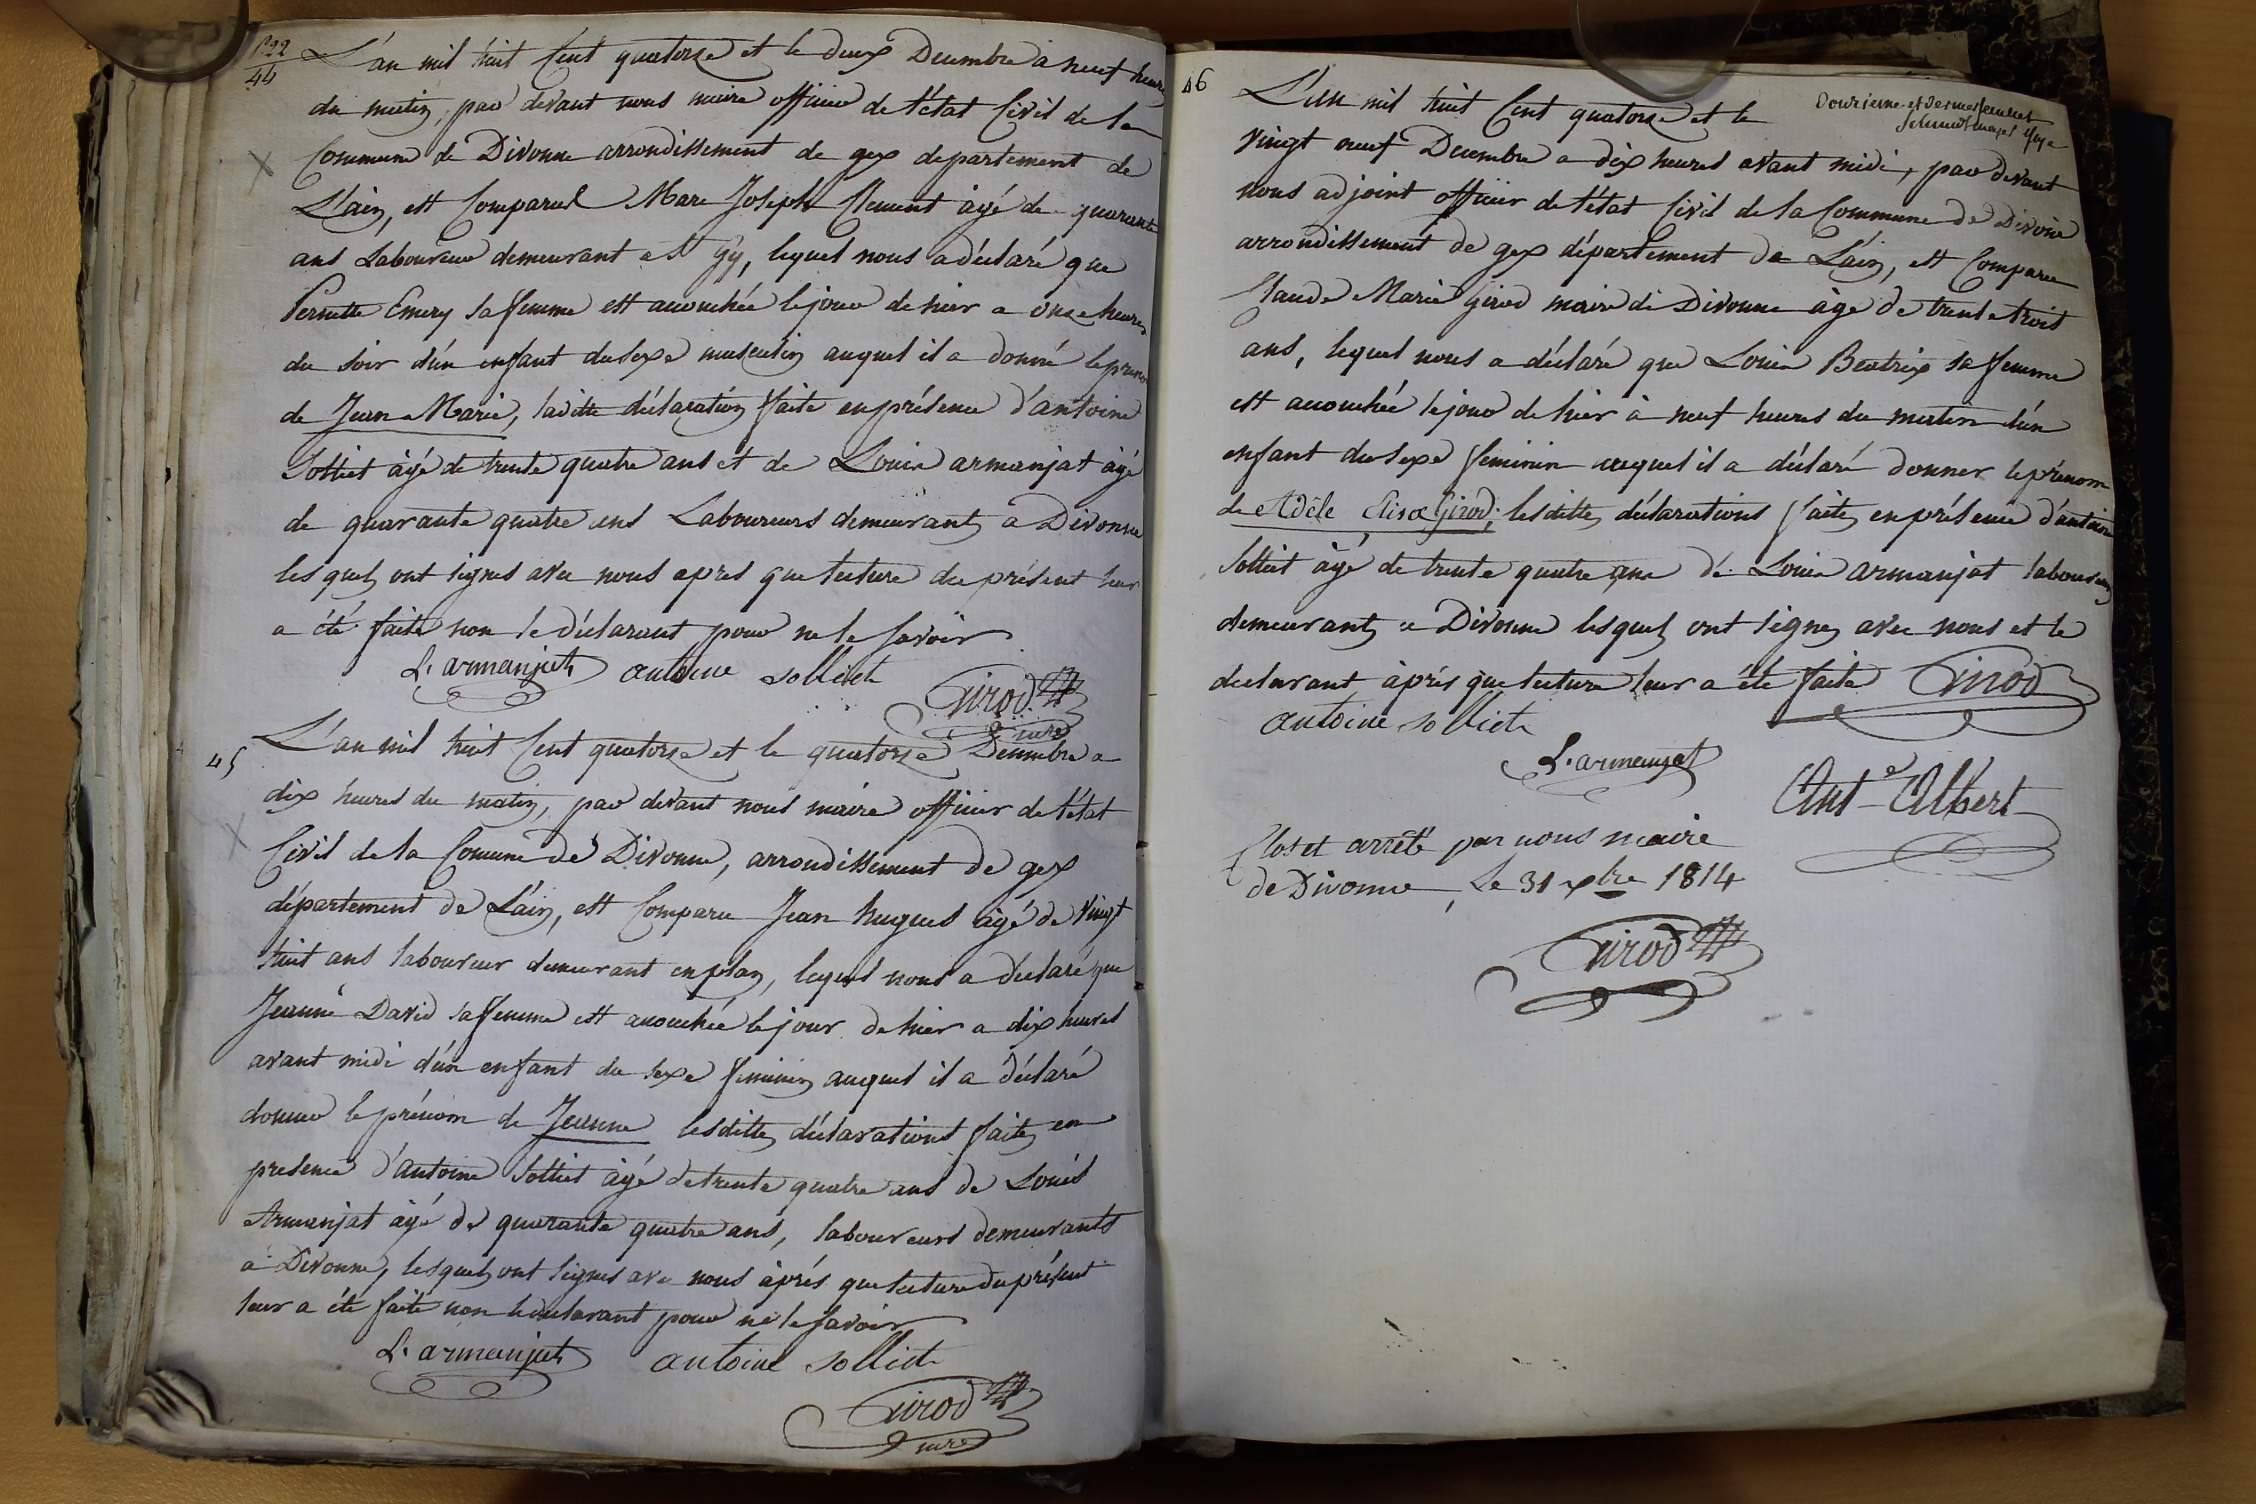 44
L'an mil huit Cent quatorze et le deux Decembre a neuf heures
du matin, par devant nous maire officier de l'état Civil de la
Commune de Divonne arrondissement de gex departement de
L'ain, est Comparul Marc Joseph Clement âgé de quarante
ans Laboureur demeurant a St gy, lequel nous a déclaré que
Pernette Emery sa femme est accouchée le jour de hier a onze heures
du soir d'un enfant du sexe masculin auquel il a donné le prenom
de Jean Marie, laditte déclaration faite en présence d'antoine
Solliet âgé de trente quatre ans et de Louis armanjat âgé
de quarante quatre ans Laboureurs demeurants a Divonne
lesquels ont signes avec nous apres que lecture du présent leur
a été faite non le déclarant pour ne le savoir
L. armanjat antoine solliet
Girod
maire
45
L'an mil huit Cent quatorze et le quatorze Decembre a
dix heures du matin, par devant nous maire officier de l'état
Civil de la Comune de Divonne, arrondissement de gex
département de L'ain, est Comparu Jean hugues âgé de vingt
huit ans laboureur demeurant en plan, lequel nous a déclaré que
Jeanne David sa femme est accouchée le jour de hier a dix heures
avant midi d'un enfant du sexe feminin auquel il a déclaré
donner le prénom de Jeanne lesdittes déclarations faites en
presence d'antoine Solliet âgé de trente quatre ans de Louis
Armanjat âgé de quarante quatre ans, laboureurs demeurants
a Divonne, lesquels ont signes avec nous après que lecture du présent
leur a été faite non le declarant pour ne le savoir
L. armanjat antoine solliet
Girod
maire
46
Douzieme et dernier feuillet
L'an mil huit Cent quatorze et le
vingt neuf Decembre a dix heures avant midi, par devant
nous adjoint officier de l'état Civil de la Commune de Divonne
arrondissement de gex département de L'ain, est Comparu
Claude Marie Girod maire de Divonne âge de trente trois
ans, lequel nous a déclaré que Louise Beatrix sa femme
est accouchée le jour de hier à neuf heures du matin d'un
enfant du sexe feminin auquel il a déclaré donner le prénom
de Adèle Elisa Girod; lesdittes déclarations faites en présence d'antoine
Solliet âgé de trente quatre ans de Louis armanjat laboureurs
demeurants a Divonne lesquels ont signes avec nous et le
declarant après que lecture leur a été faite Girod
antoine solliet
L. armanjat
Ant-e Albert
Clos et arrêté par nous maire
de Divonne, Le 31 xbre 1814
Girod